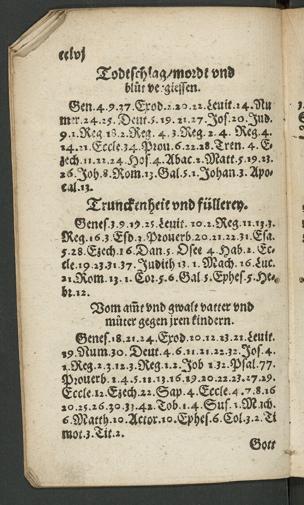 cclvj
Todtschlag/mordt vnd
blůt vergiessen.
Gen.4.9.37.Exod.2.20.22.Leuit.24.Nu
mer.24.25.Deut.5.19.21.27.Jos.20.Jud.
9.1.Reg.18.2.Reg.4.3.Reg.2.4.Reg.4.
14.21.Eccle.34.Prou.6.22.28.Tren.4.E
zech.11.22.24.Hos.4.Abac.2.Matt.5.19.23.
26.Joh.8.Rom.13.Gal.5.1.Johan.3.Apo-
cal.13.
Trunckenheit vnd füllerey.
Genes.3.9.19.25.Leuit.10.2.Reg.11.13.3.
Reg.16.3.Esd.3.Prouerb.20.21.22.31.Esa.
5.28.Ezech.16.Dan.5.Osee 4.Hab.2.Ec-
cle.19.23.31.37.Judith 13.1.Mach.16.Luc.
21.Rom.13.1.Cor.5.6.Gal 5.Ephes.5.He-
br.12.
Vom am̄t vnd gwalt vatter vnd
můter gegen jren kindern.
Genes.18.21.24.Exod.10.12.13.21.Leuit.
19.Num.30.Deut.4.6.11.21.22.32.Jos.4.
1.Reg.2.3.12.3.Reg.1.2.Job 1.32.Psal.77.
Prouerb.1.4.5.11.13.16.19.20.22.23.27.29.
Eccle.12.Ezech.22.Sap.4.Eccle.4.7.8.16
20.25.26.30.33.42.Tob.1.4.Sus.1.Mach.
6.Matth.10.Actor.10.Ephes.6.Col.3.2.Ti
mot.3.Tit.2.
Gott